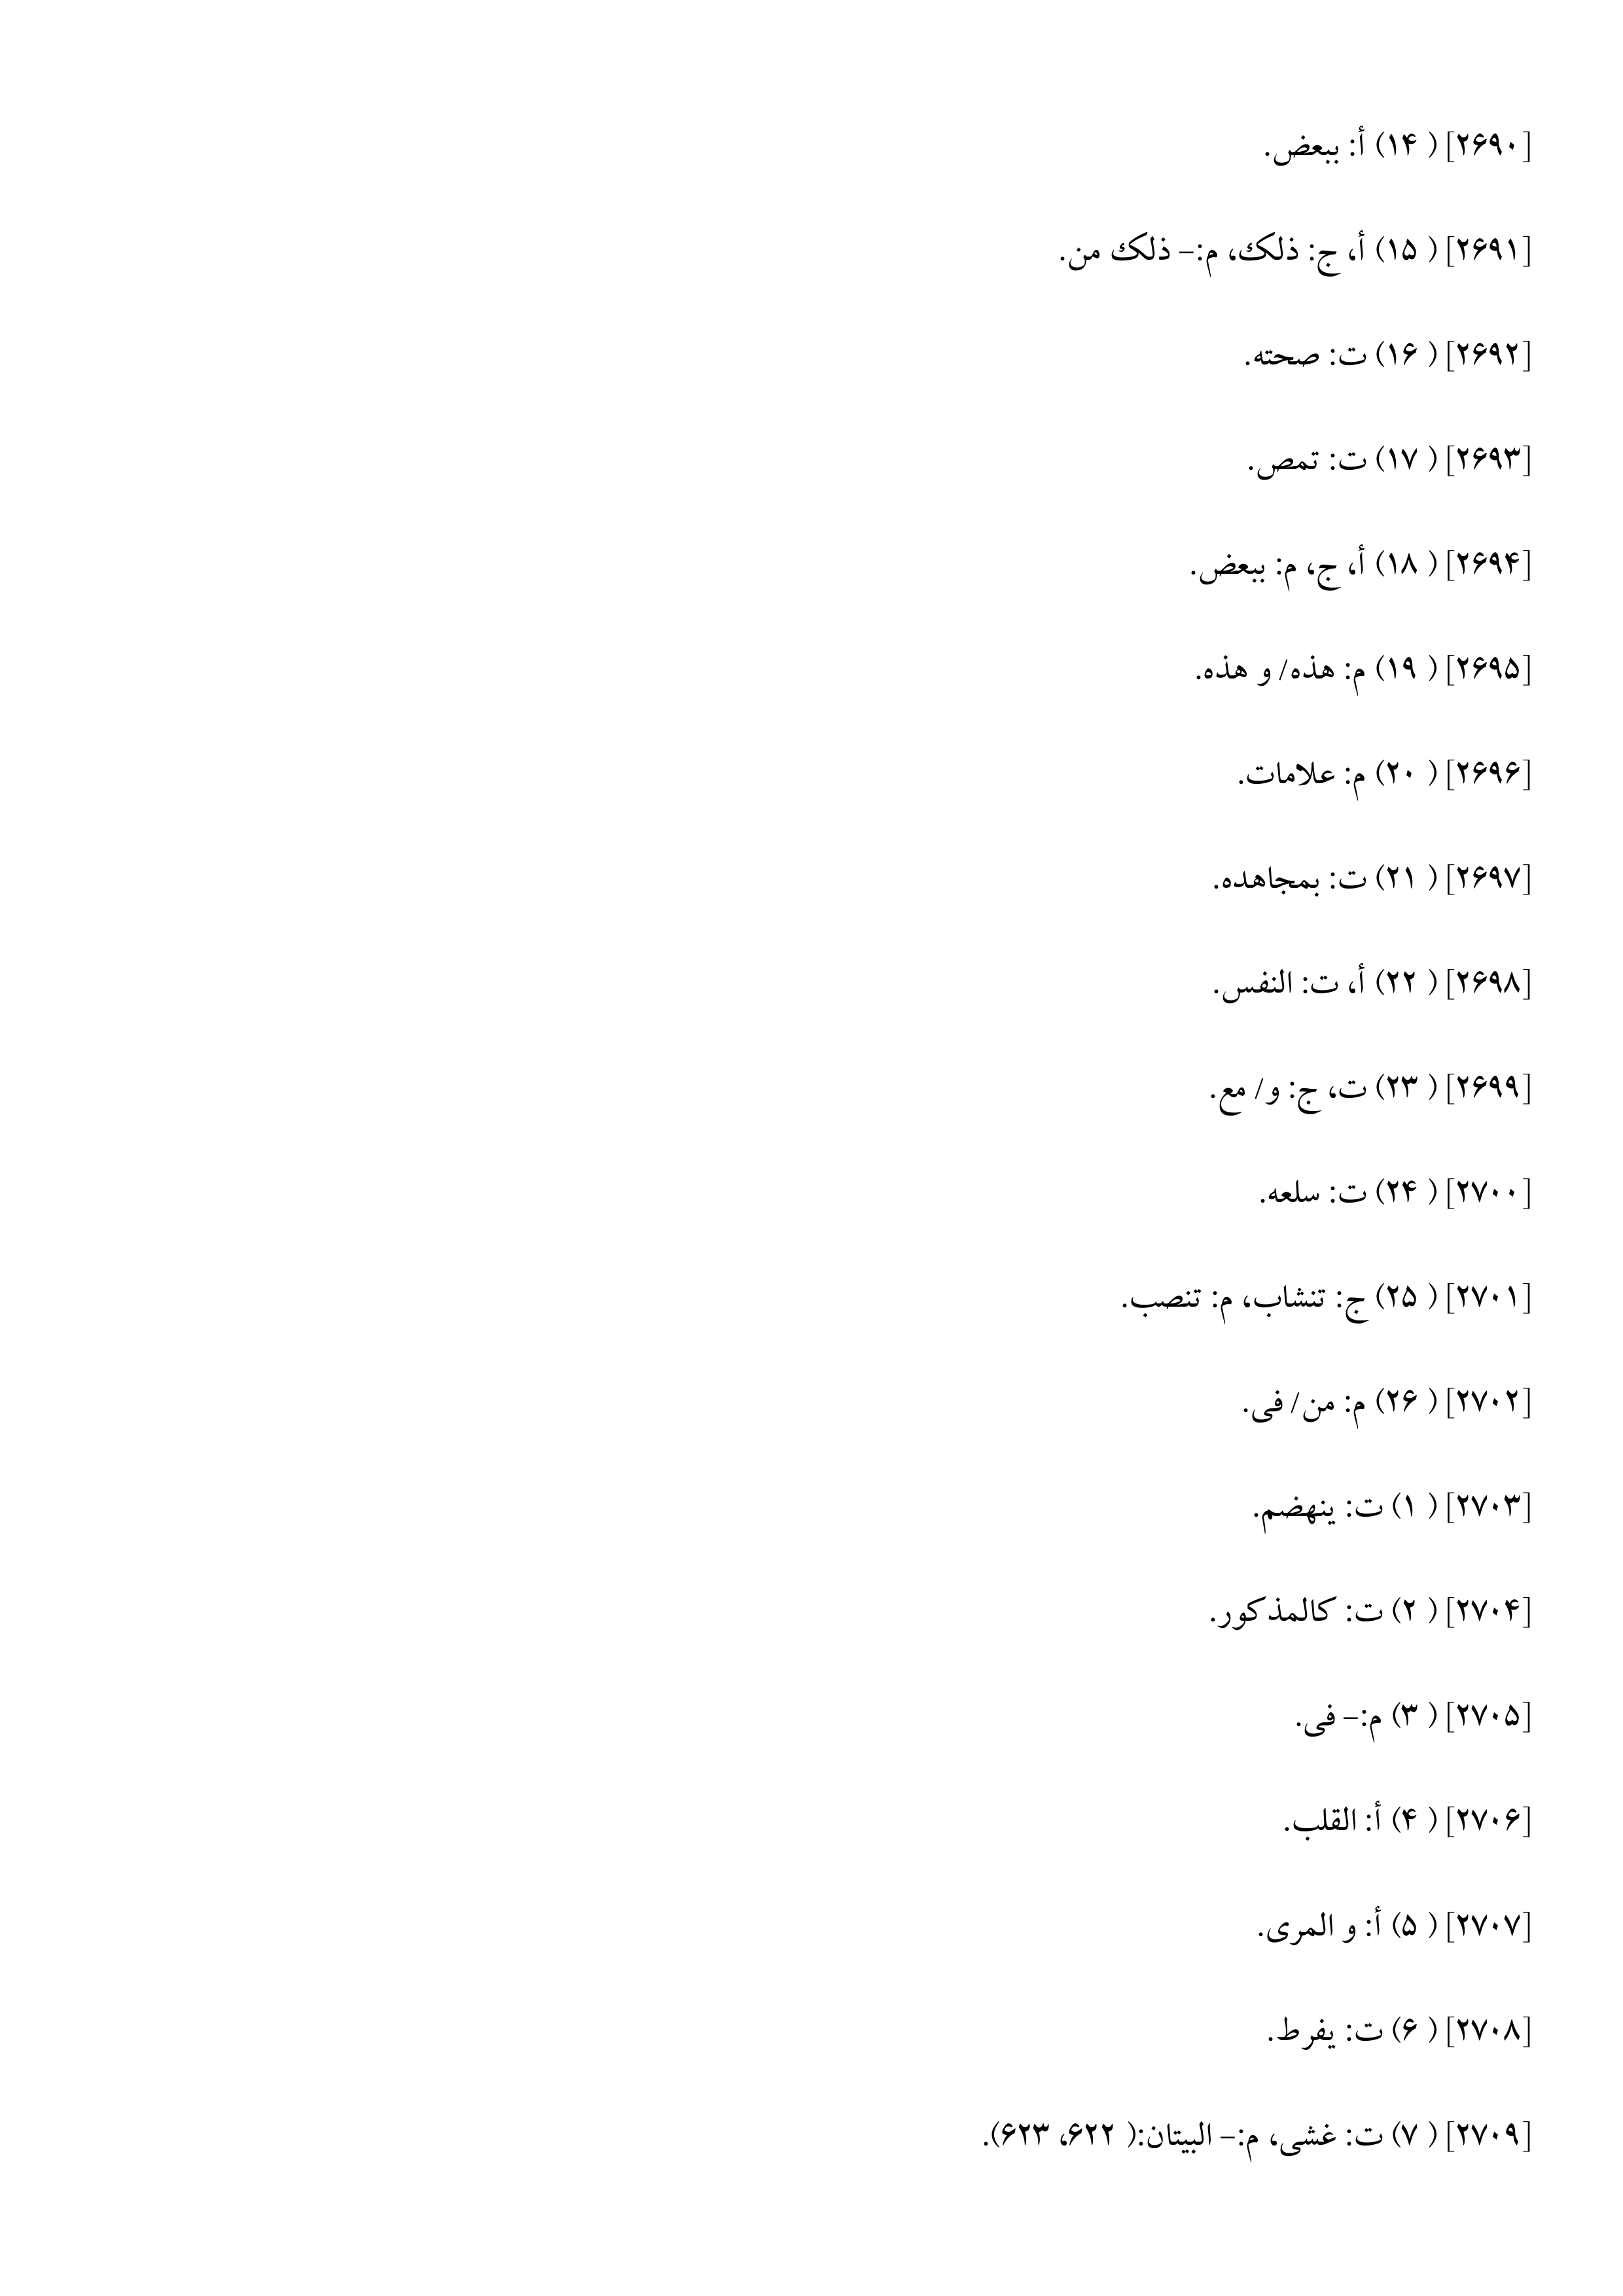 [۲۶۹۰] ( ۱۴) أ: ببعض.
[۲۶۹۱] ( ۱۵) أ، ج: ذلک، م:- ذلک من.
[۲۶۹۲] ( ۱۶) ت: صحته.
[۲۶۹۳] ( ۱۷) ت: تمص.
[۲۶۹۴] ( ۱۸) أ، ج، م: ببعض.
[۲۶۹۵] ( ۱۹) م: هذه/ و هذه.
[۲۶۹۶] ( ۲۰) م: علامات.
[۲۶۹۷] ( ۲۱) ت: بمجاهده.
[۲۶۹۸] ( ۲۲) أ، ت: النفس.
[۲۶۹۹] ( ۲۳) ت، ج: و/ مع.
[۲۷۰۰] ( ۲۴) ت: سلعه.
[۲۷۰۱] ( ۲۵) ج: تنشاب، م: تنصب.
[۲۷۰۲] ( ۲۶) م: من/ فی.
[۲۷۰۳] ( ۱) ت: ینهضم.
[۲۷۰۴] ( ۲) ت: کالمذکور.
[۲۷۰۵] ( ۳) م:- فی.
[۲۷۰۶] ( ۴) أ: القلب.
[۲۷۰۷] ( ۵) أ: و المری.
[۲۷۰۸] ( ۶) ت: یفرط.
[۲۷۰۹] ( ۷) ت: غشی، م:- البیتان:( ۶۲۲، ۶۲۳).